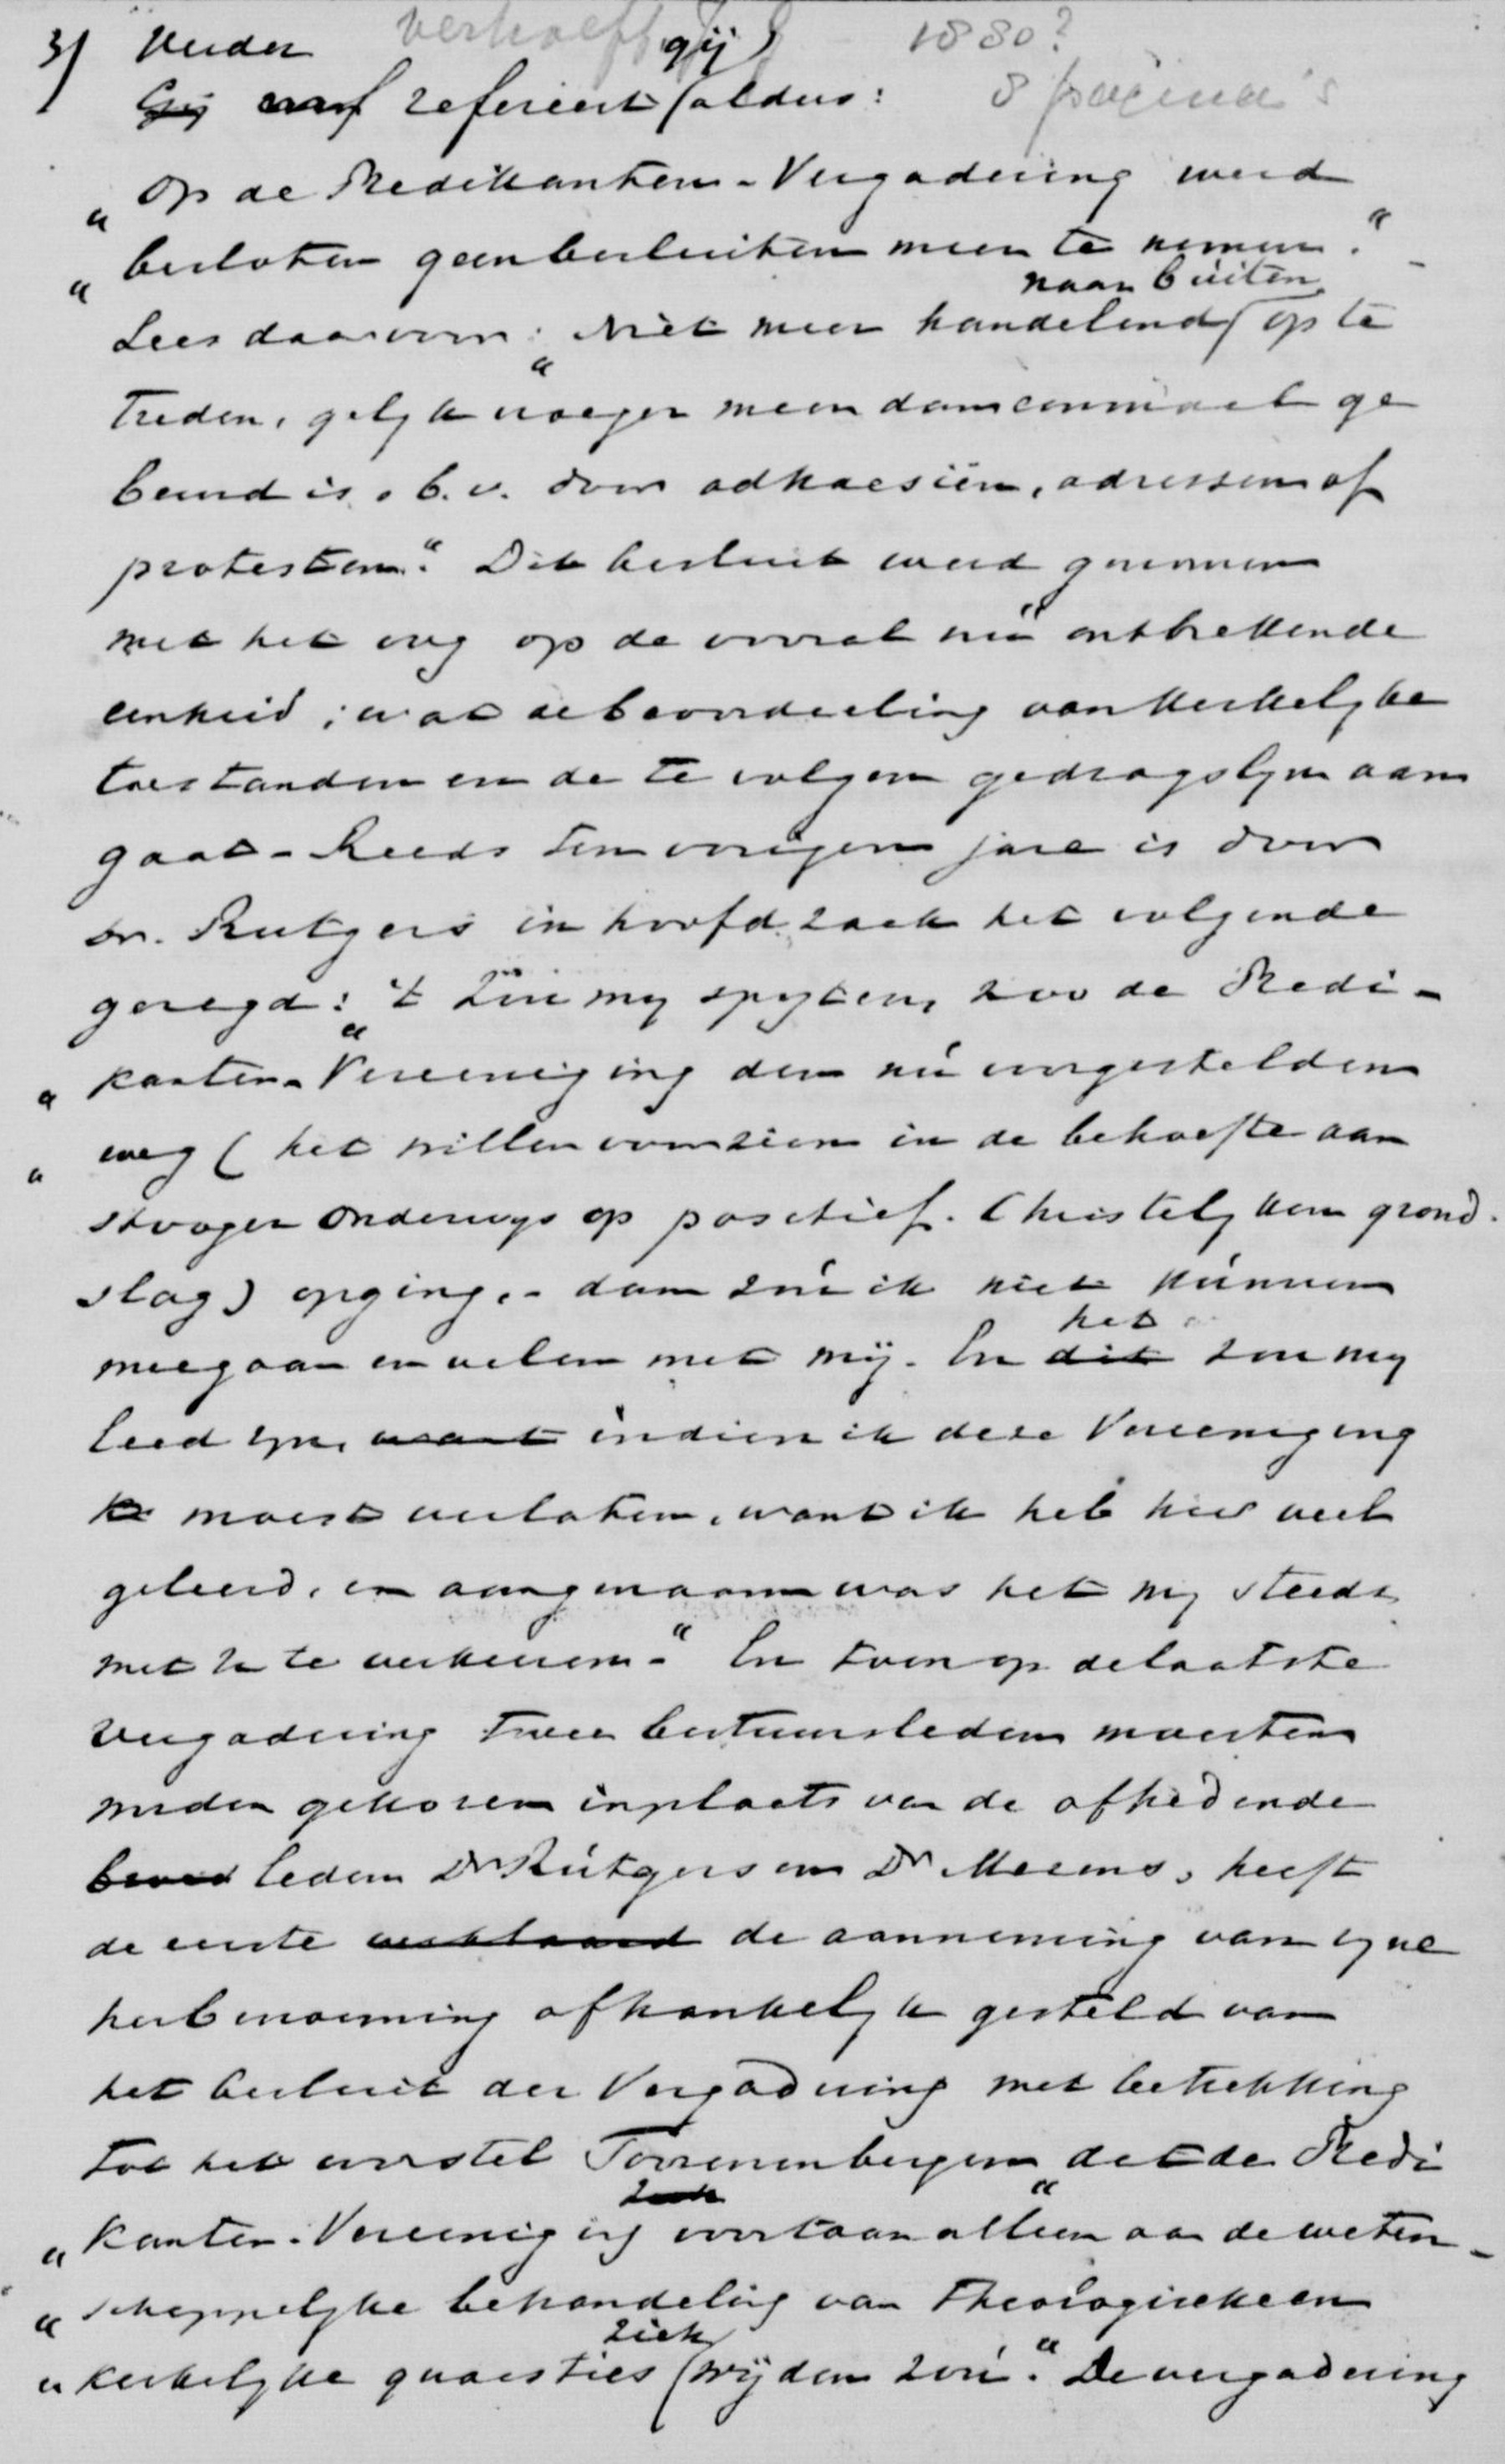 3) Verder verhoeff gij 1880?
Gij refereert aldus: 8 pagina's
„ Op de Predikanten-Vergadering werd
„ besloten geen besluiten meer te nemen."
naar buiten
Lees daarvoor: „Niet meer handelend op te
treden, gelijk vroeger meer dan eenmaal ge
beurd is, b.v. door adhaesiën, adressen of
protesten." Dit besluit werd genomen
met het oog op de vooral nu ontbrekende
eenheid, wat de beoordeeling van kerkelijke
toestanden en de te volgen gedragslijn aan
gaat. Reeds ten vorigen jare is door
Dr. Rutgers in hoofdzaak het volgende
gezegd: „'t Zou mij spijten, zoo de Predi-
„ kanten-Vereeniging den nu voorgestelden
„ weg (het willen voorzien in de behoefte aan
Hooger Onderwijs op positief-Christelijken grond-
slag) opging, - dan zou ik niet kunnen
het
meegaan en velen met mij. En dit zou mij
leed zijn, want indien ik deze Vereeniging
moest verlaten, want ik heb hier veel
geleerd, en aangenaam was het mij steeds
met U te verkeeren." En toen op de laatste
Vergadering twee bestuursleden moesten
worden gekozen in plaats van de aftredende
leden Dr Rutgers en Dr Meems, heeft
de eerste verklaard de aanneming van zijne
herbenoeming afhankelijk gesteld van
het besluit der Vergadering met betrekking
tot het voorstel Torrenenbergen „dat de Predi
zich
„ kanten-Vereeniging voortaan alleen aan de weten-
„ schappelijke behandeling van Theologische en
zich
„ kerkelijke quaesties wijden zou." De vergadering